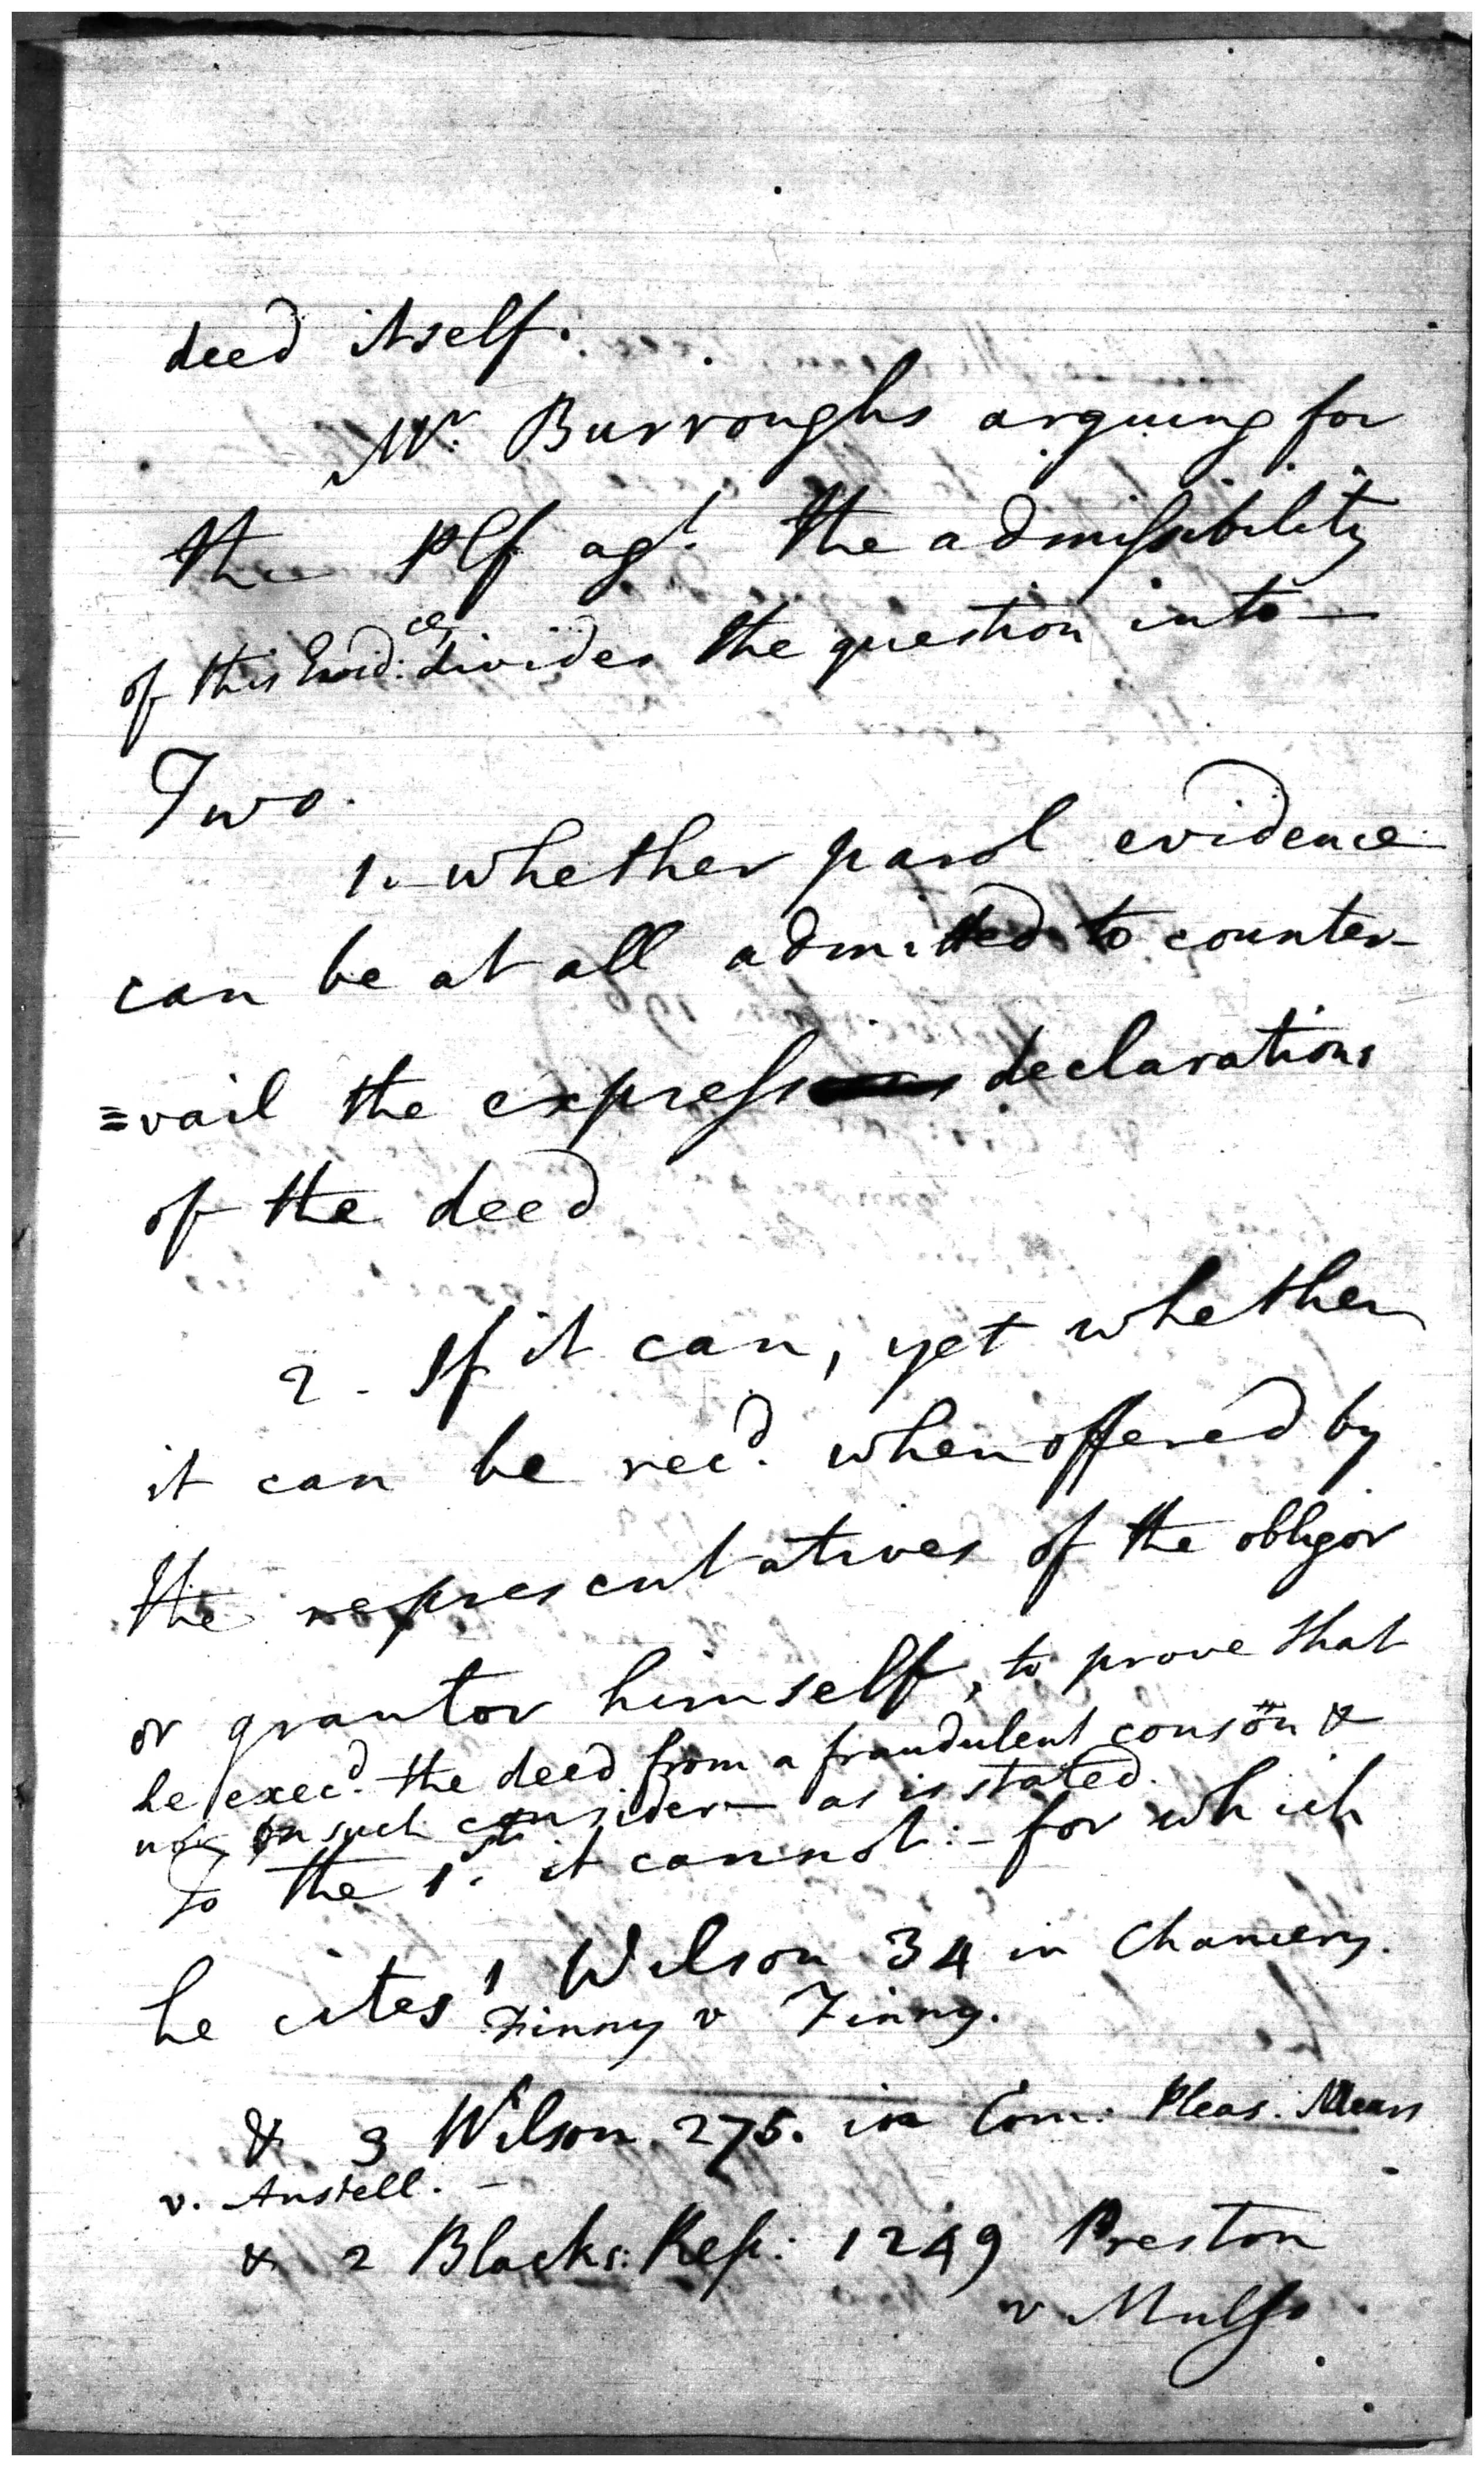 deed itself.
Mr. Burroughs arguing for
the Plf agt. the admissibility
of this Evid:ce divides the question into —
Two.
1. — whether parol evidence
can be at all admitted to counter-
=vail the express declarations
of the deed
2 - If it can, yet whether
it can be recd. when offered by
the representatives of the obligor
or grantor himself, to prove that
he execd. the deed from a fraudulent consön &
not on such consider— as is stated.
To the 1st. it cannot: - for which
he cites 1 Wilson 34 in Chancery.
Finny v Finny.
& 3 Wilson 275. in Com: Pleas. Mears
v. Anstell. -
& 2 Blacks: Rep: 1249 Preston
v Mulss